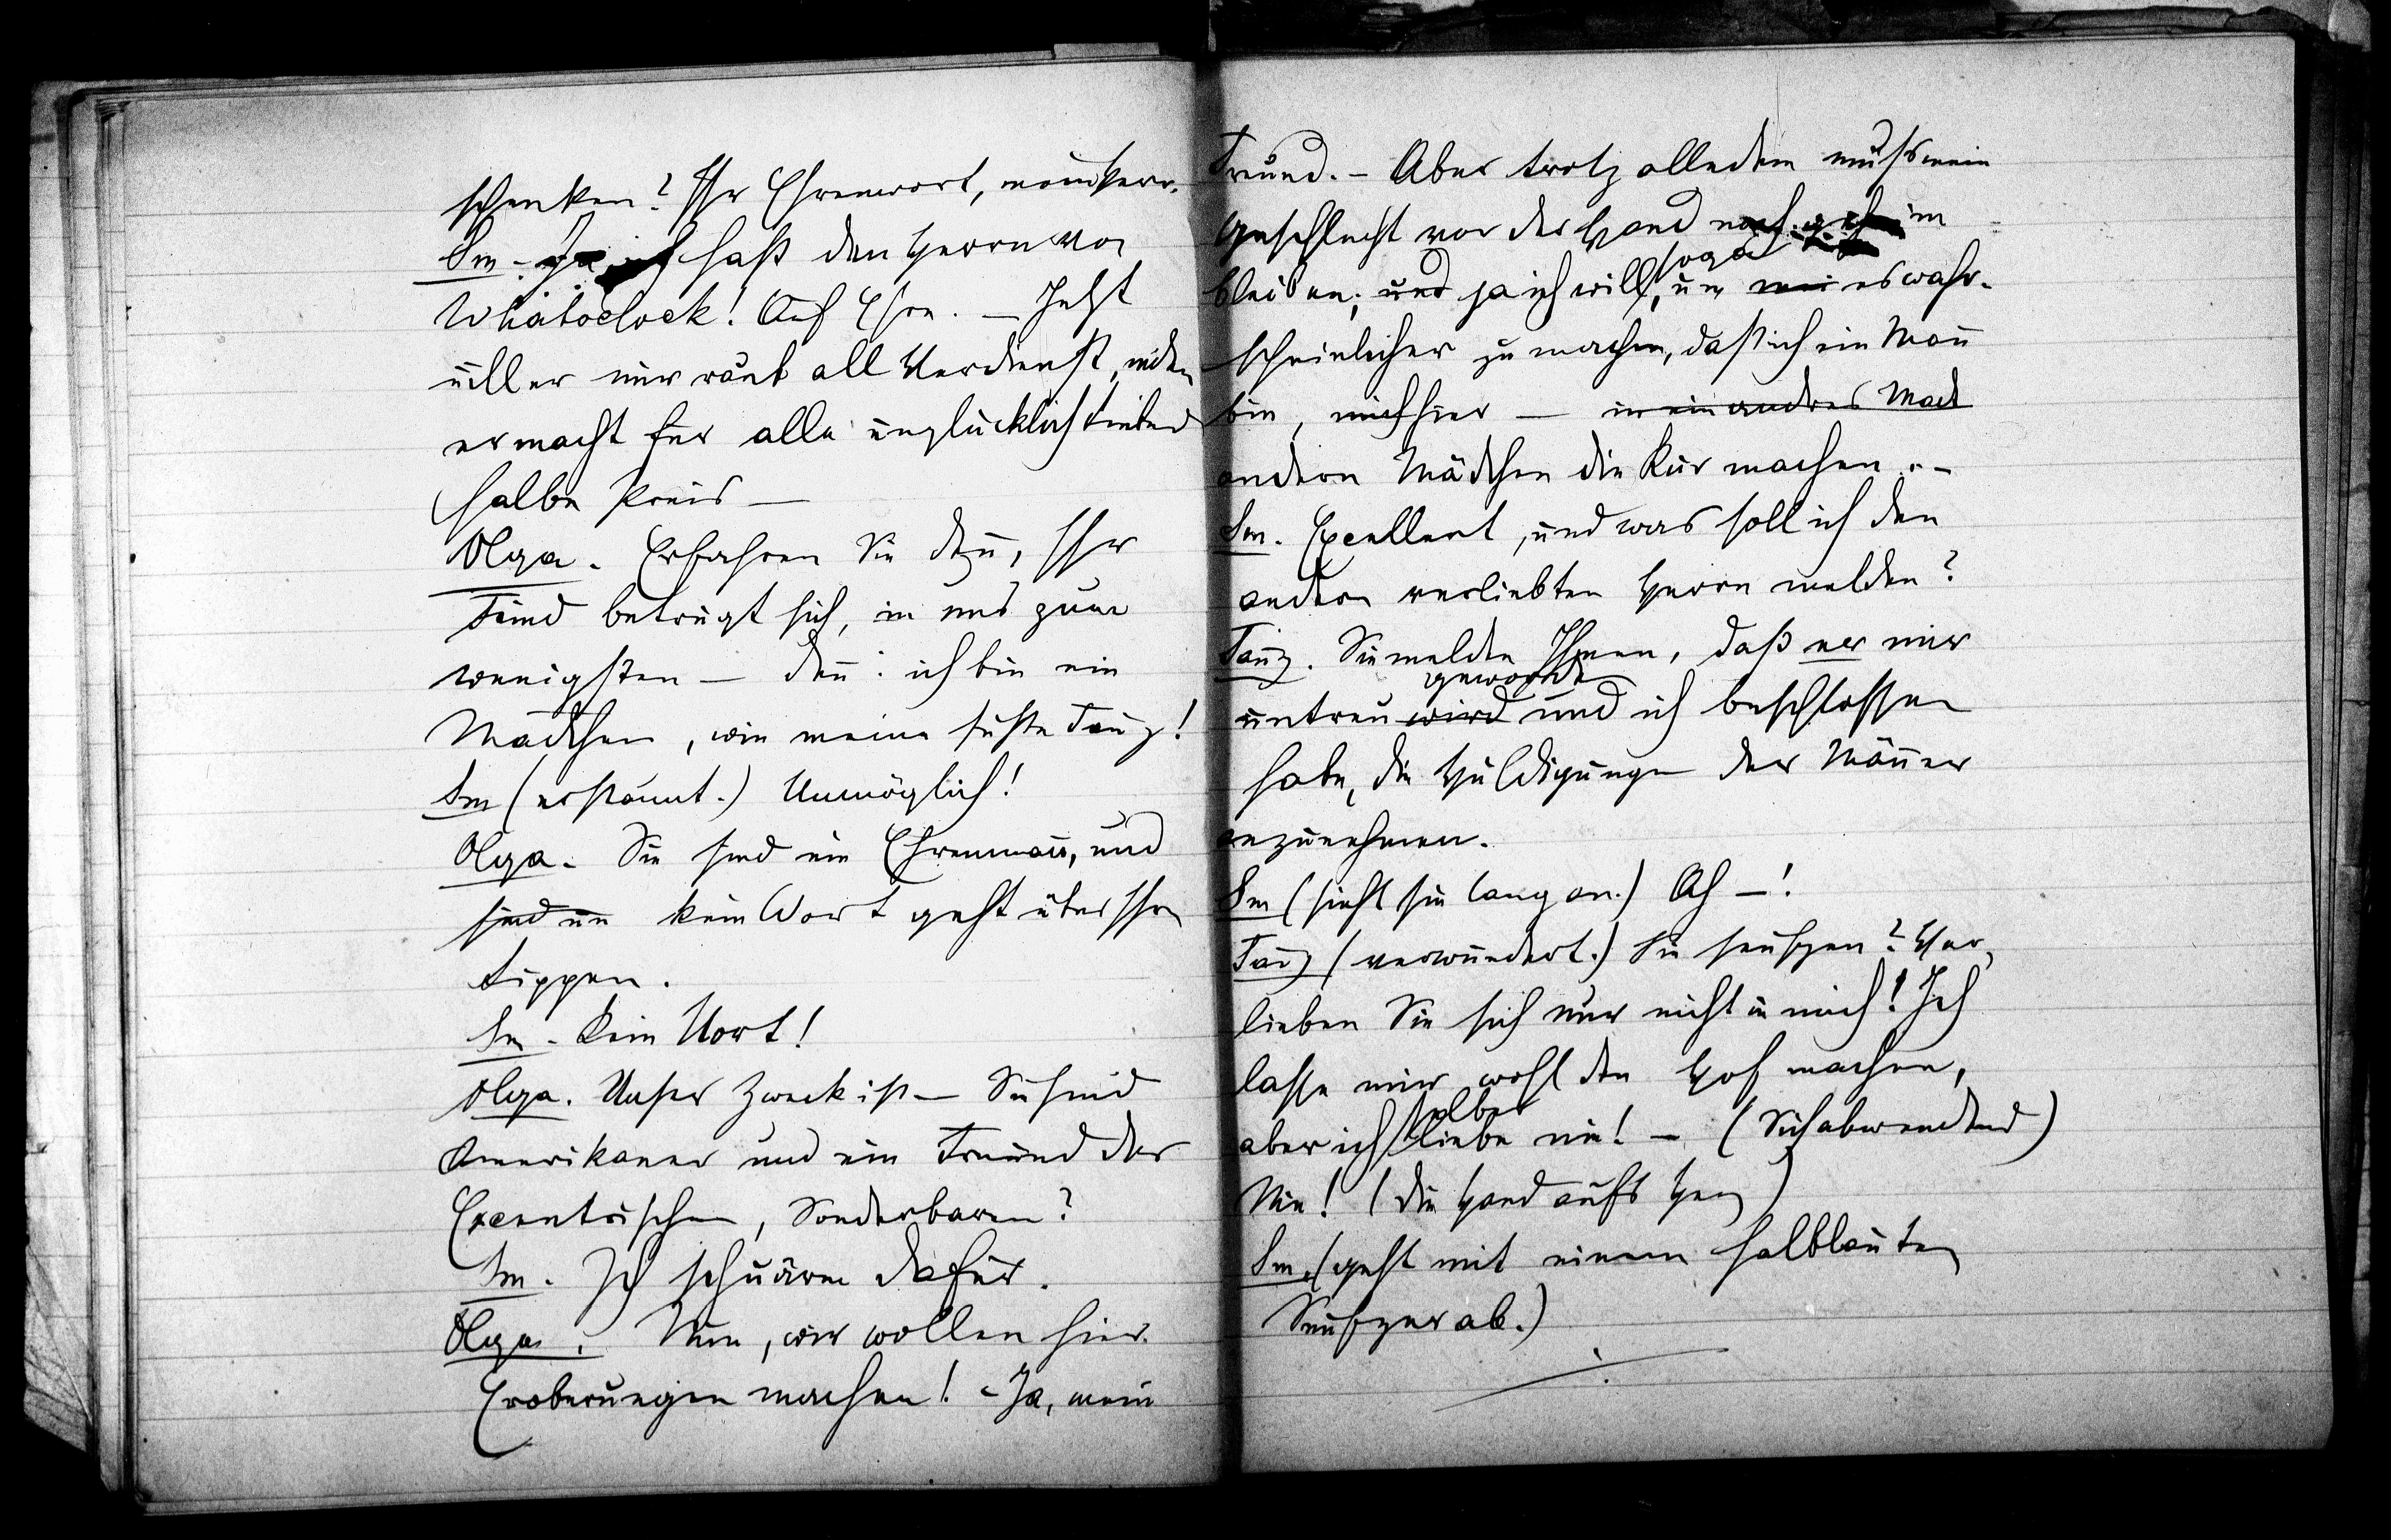 schenken? Ihr Ehrenwort, mein Herr.
Sm. Ja, ich haß den Herrn von
Whatoclock! Auf Ehre. — Jetzt
will er mir raub all Verdienst, inde
er macht für alle unglücklich Liebend
halbe Preis —
Olga. Erfahren Sie deñ, Ihr
Feind betrügt sich, in uns zum
wenigsten — deñ: ich bin ein
Mädchen, wie meine süße Fañy!
Sm (erstaunt.) Unmöglich!
Olga. Sie sind ein Ehrenmañ, und
sind un kein Wort geht über Ihre
Lippen.
Sm. Kein Wort!
Olga. Unser Zweck ist — Sie sind
Amerikaner und ein Freund des
Excentrischen, Sonderbaren?
Sm. Ich schwärme dafür.
Olga. Nun, wir wollen hier
Eroberungen machen! — Ja, mein
Freund. — Aber trotz alledem muß mein
Geschlecht vor der Hand noch geheim
bleiben; und ja ich will, sogar um mei es wahr-
scheinlicher zu machen, daß ich ein Mañ
bin, mich hier — in ein andres Mäd
andern Mädchen die Kur machen. —
Sm. Excellent, und was soll ich den
andern verliebten Herrn melden?
Fañy. Sie melden Ihnen, daß er mir
untreu wird geworden und ich beschlossen
habe, die Huldigungen der Mäñer
anzunehmen.
Sm (sieht sie lang an.) Ah —!
Fañy (verwundert.) Sie seufzen? Ver-
lieben Sie sich nur nicht in mich! Ich
lasse mir wohl den Hof machen,
aber ich selber liebe nie! — (Sich abwendend)
Nie! (die Hand aufs Herz)
Sm. (geht mit einem halblauten
Seufzer ab.)